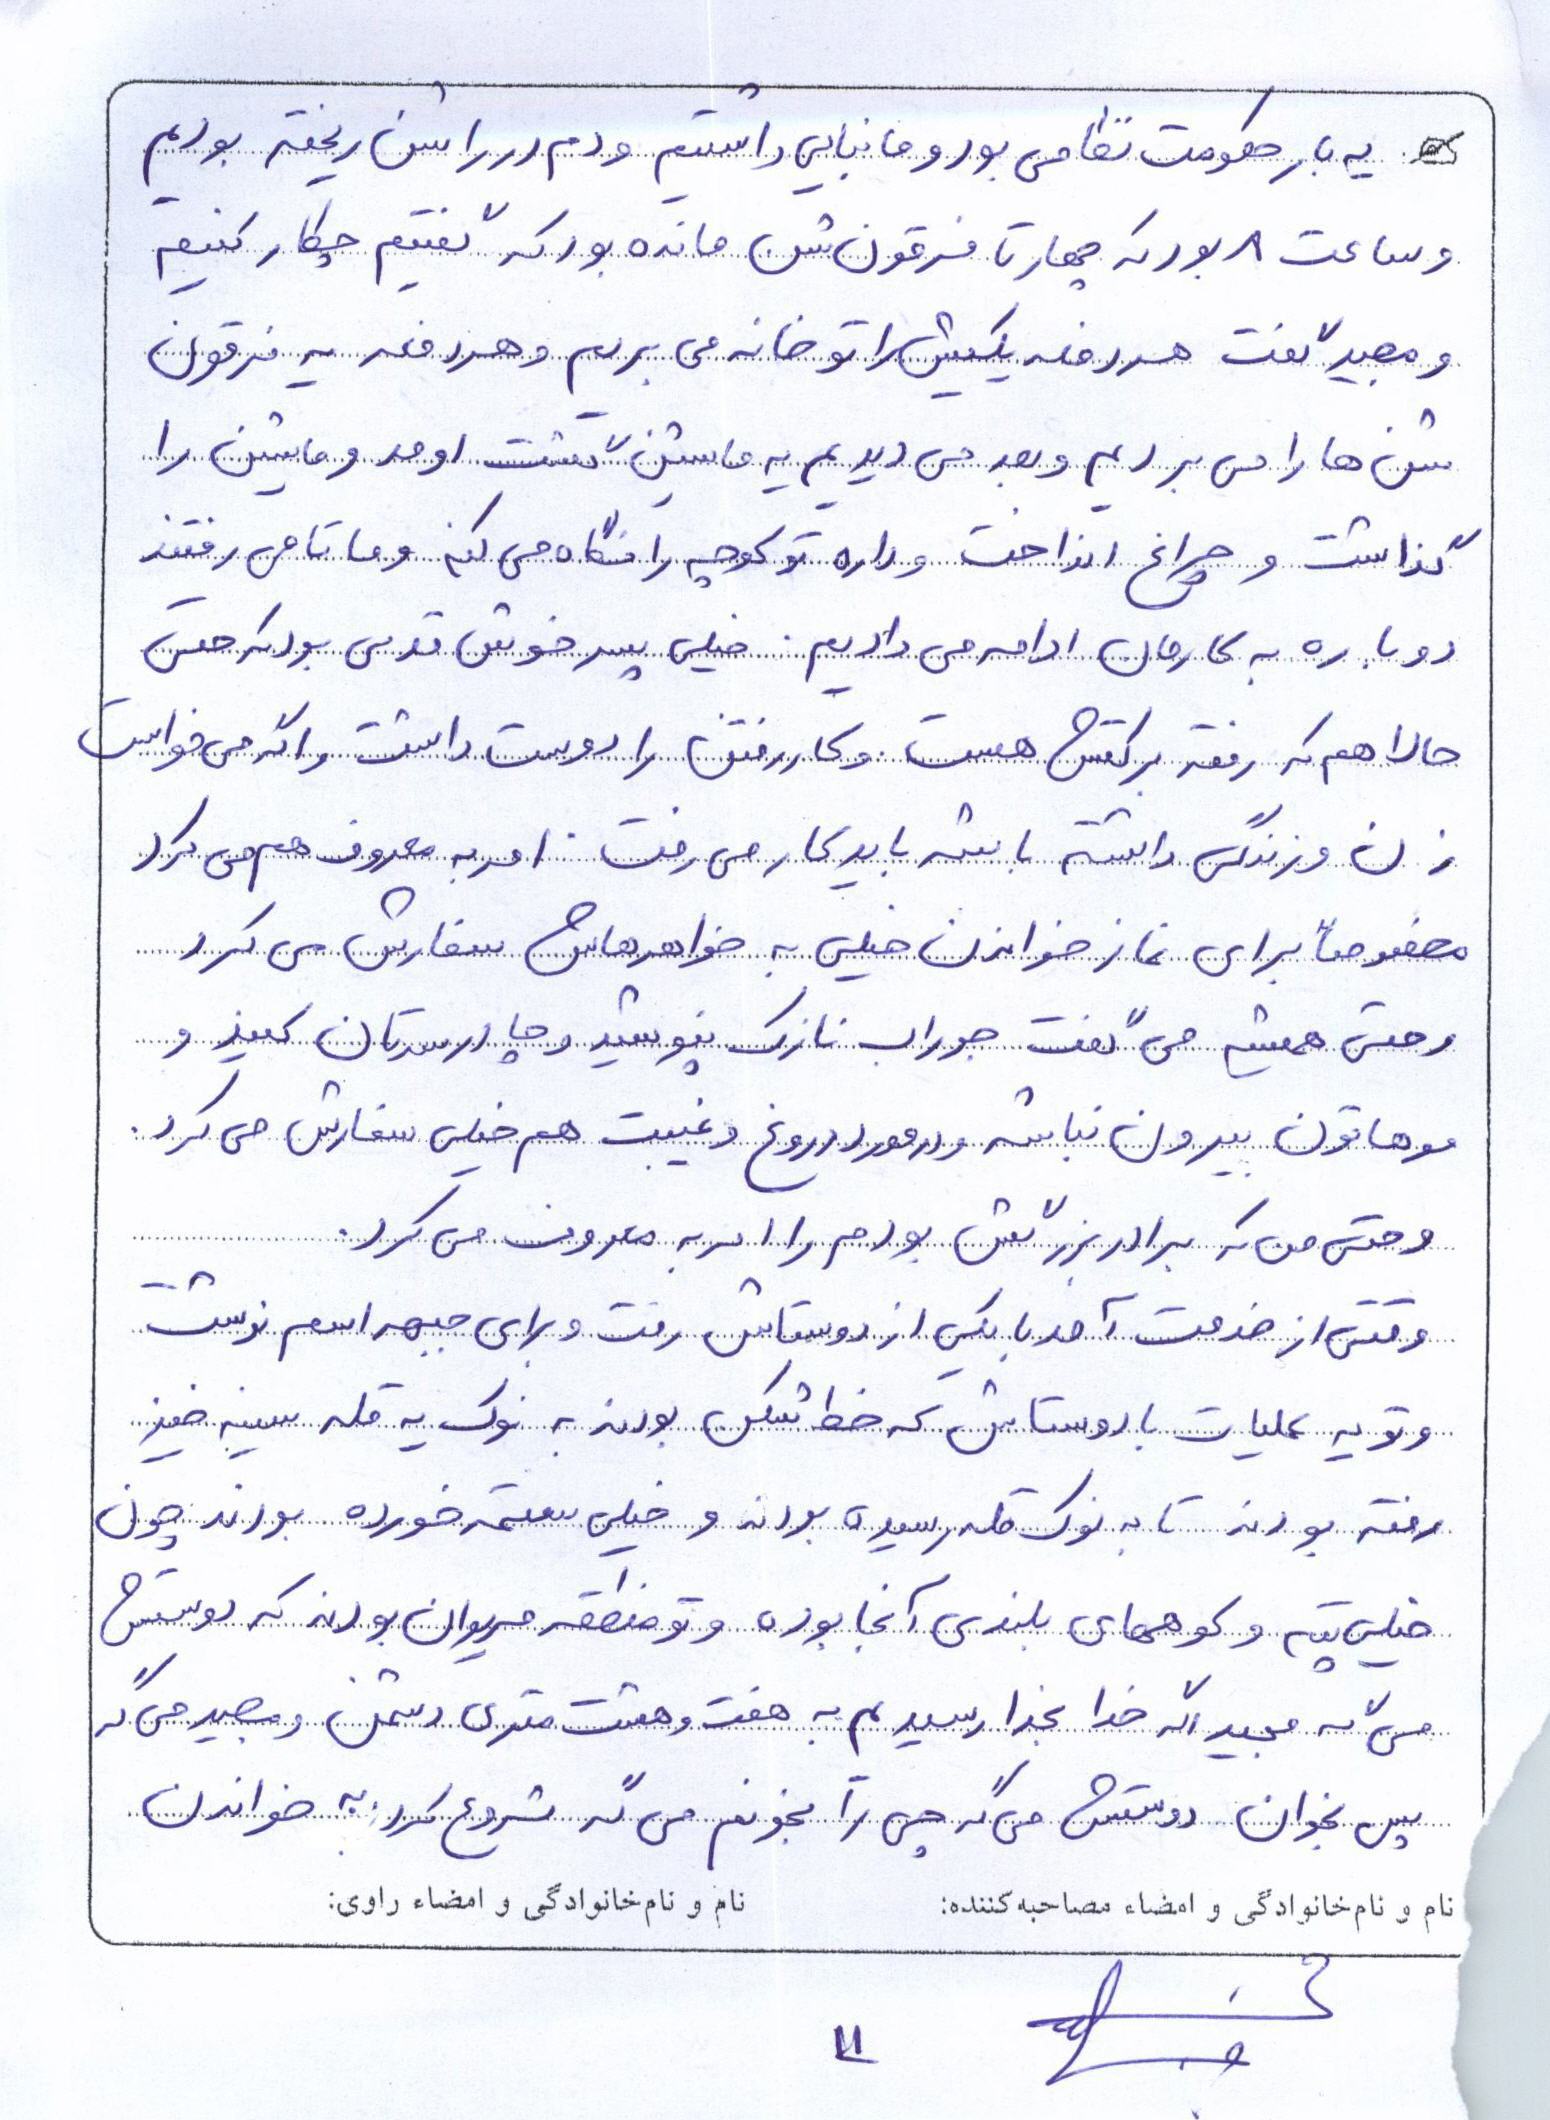 یه بار حکومت نظامی بود و ما بنایی داشتیم و دم در را شن ریخته بودیم
و ساعت ۸ بود که چهار تا فرقون شن مانده بود که گفتیم چکار کنیم
و مجید گفت هر دفعه یکیش را تو خانه می بریم و هر دفعه یه فرقون
شن ها را می بردیم و بعد می دیدیم یه ماشین گشت اومد و ماشین را
گذاشت و چراغ انداخت و داره تو کوچه را نگاه می کنه و ما تا می رفتند
دوباره به کارمان ادامه می دادیم. خیلی پسر خوش قدمی بود که حتی
حالا هم که رفته برکتش هست. و کار رفتن را دوست داشت و اگه می خواست
زن و زندگی داشته باشه باید بکار می رفت. امر به معروف هم می کرد
مخصوصاً برای نماز خواندن خیلی به خواهرهاش سفارش می کرد
و حتی همیشه می گفت جوراب نازک نپوشید و چادر سرتان کنید و
موهاتون بیرون نباشه و در مورد دروغ و غیبت هم خیلی سفارش می کرد.
و حتی من که برادر بزرگش بودم را امر به معروف می کرد.
وقتی از خدمت آمد با یکی از دوستاش رفت و برای جبهه اسم نوشت
و تو یه عملیات با دوستاش که خط شکن بودند به نوک یه قله سینه خیز
رفته بودند تا به نوک قله رسیده بودند و خیلی صدمه خورده بودند چون
خیلی تپه و کوههای بلندی آنجا بوده و تو منطقه مریوان بودند که دوستش
می گه مجید اگه خدا بخدا رسیدیم به هفت و هشت متری دشمن و مجید می گه
پس بخوان دوستش می گه چی را بخونم می گه شروع کرد به خواندن
نام و نام‌خانوادگی و امضاء مصاحبه‌کننده: نام و نام‌خانوادگی و امضاء راوی: